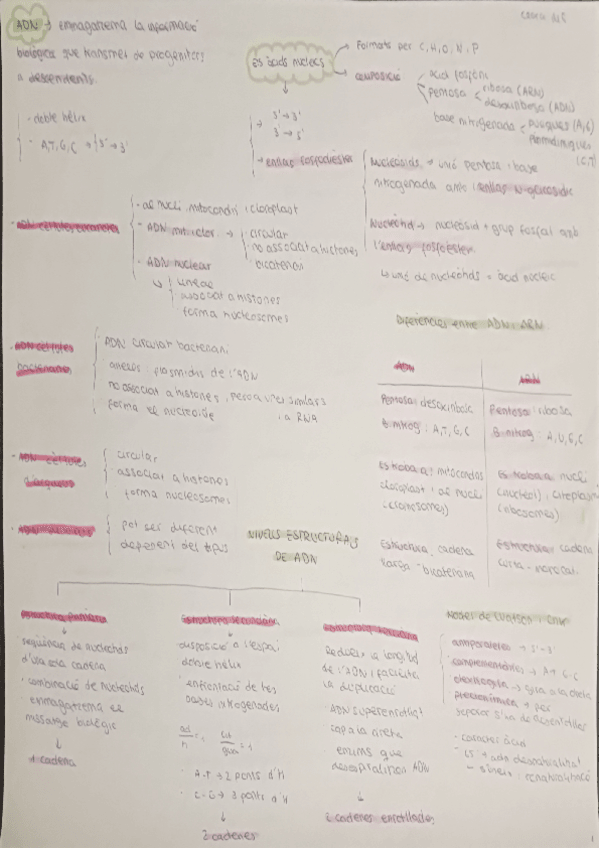 ADN → emmagatzema la informació
biològica que transmet de progenitors
a descendents.
· doble hèlix
· A,T,G,C → 5'→3'
Els àcids nucleics
→ Formats per C, H, O, N, P
→ COMPOSICIÓ
àcid fosfòric
pentosa
ribosa (ARN)
desoxiribosa (ADN)
base nitrogenada
púriques (A,G)
Pirimidíniques
(C,T)
→ 5'→3'
3'→5'
→ enllaç fosfodièster
Nucleòsids → unió pentosa i base
nitrogenada amb l'enllaç N-glicosídic
Nucleòtid → nucleòsid + grup fosfat amb
l'enllaç fosfoèster
↳ unió de nucleòtids = àcid nucleic
· ADN cèl·lules eucariotes
- al nucli, mitocondris i cloroplast
- ADN mit i clor →
circular
no associat a histones
bicatenari
- ADN nuclear
↳ lineal
associat a histones
forma nucleosomes
· ADN cèl·lules
bacterianes
ADN circular bacterià
anexos plasmidis de l'ADN
no associat a histones, però a unes similars
forma el nucleoide i a RNA
· ADN cèl·lules
circular
associat a histones
forma nucleosomes
· ADN
pot ser diferent
depenent del tipus
Diferències entre ADN i ARN
ADN
ARN
Pentosa: desoxiribosa
Pentosa: ribosa
B. nitrog: A,T,G,C
B. nitrog: A,U,G,C
Es troba a: mitocondris
cloroplast i al nucli
(cromosomes)
Es troba a nucli
(nuclèol) i citoplasma
(ribosomes)
Estructura: cadena
llarga i bicatenària
Estructura: cadena
curta - monocat.
NIVELLS ESTRUCTURALS
DE ADN
Estructura primària
· seqüència de nucleòtids
d'una sola cadena
· combinació de nucleòtids
· emmagatzema el
missatge biològic
1 cadena
Estructura secundària
· disposició a l'espai
doble hèlix
· enfrontació de les
bases nitrogenades
· A-T → 2 ponts d'H
· C-G → 3 ponts d'H
2 cadenes
Estructura terciària
· Reduir la longitud
de l'ADN i facilita
la duplicació
· ADN superenrotllat
cap a la dreta
· enzims que
desespiralitzen ADN
2 cadenes enrotllades
Notes de Watson i Crick
· antiparal·leles → 5'-3'
· complementàries → A-T G-C
· dextrogira → gira a la dreta
· plectonímica → per
separar s'ha de desenrotllar
· caràcter àcid